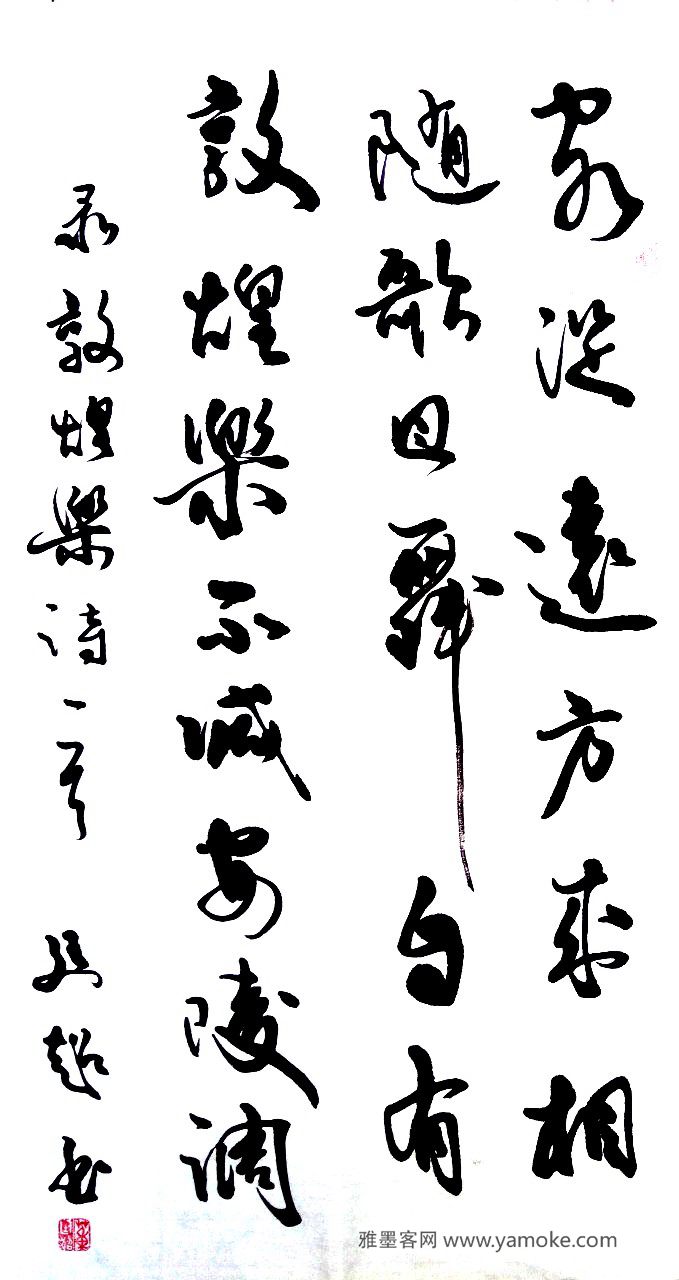 客從遠方來相
随歌且舞自有
敦煌樂不減安陵调
录敦煌樂诗一首 超书
雅墨客网 www.yamoke.com